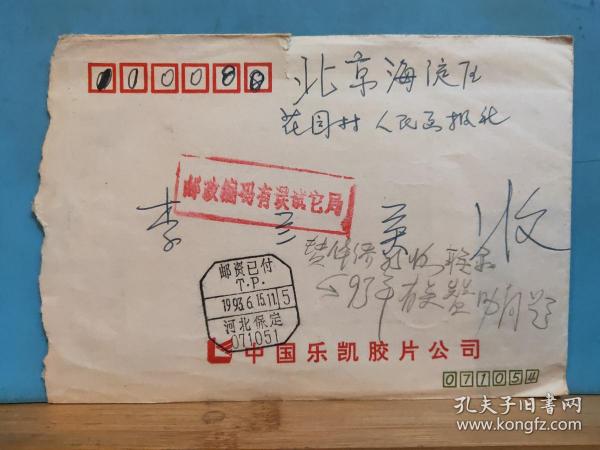 110088
北京海淀区
花园村 人民画报社
邮政编码有误试它局
李 兰 英 收
邮资已付
T.P.
1993.6.15.11 5
河北保定
071051
中国乐凯胶片公司
071054
孔夫子旧书网
www.kongfz.com